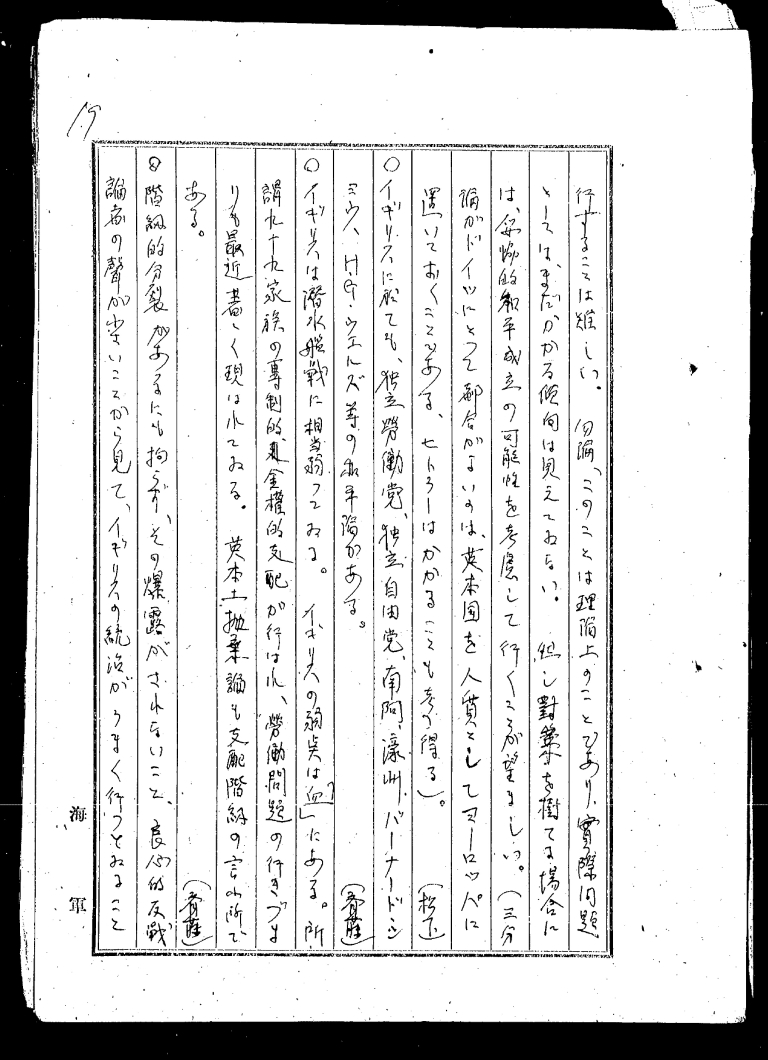 19
行することは難しい。勿論、このことは理論上のことであり、實際問題
としては、まだかかる傾向は見えてゐない。但し對策を樹てる場合に
は、妥協的和平成立の可能性を考慮して行くことが望ましい。(三分
論がドイツにとつて都合がよいのは、英本国を人質としてヨーロッパに
置いておくことである、ヒトラーはかかることも考へ得る)。(松下)
〇イギリスに於ても、独立勞働党、独立自由党、南阿、濠洲、バーナード・シ
ミウ、H・G・ウエルズ等の和平論がある。(齊藤)
〇イギリスは潛水艦戦に相当弱つてゐる。イギリスの弱点は「血」にある。所
謂九十九家族の專制的、金權的支配が行はれ、勞働問題の行きづま
りも最近著しく現はれてゐる。英本土抛棄論も支配階級の言ふ所で
ある。(齊藤)
〇階級的分裂があるにも拘らず、その爆露がされないこと、良心的反戦
論者の聲が小さいことから見て、イギリスの統治がうまく行つてゐること
海軍